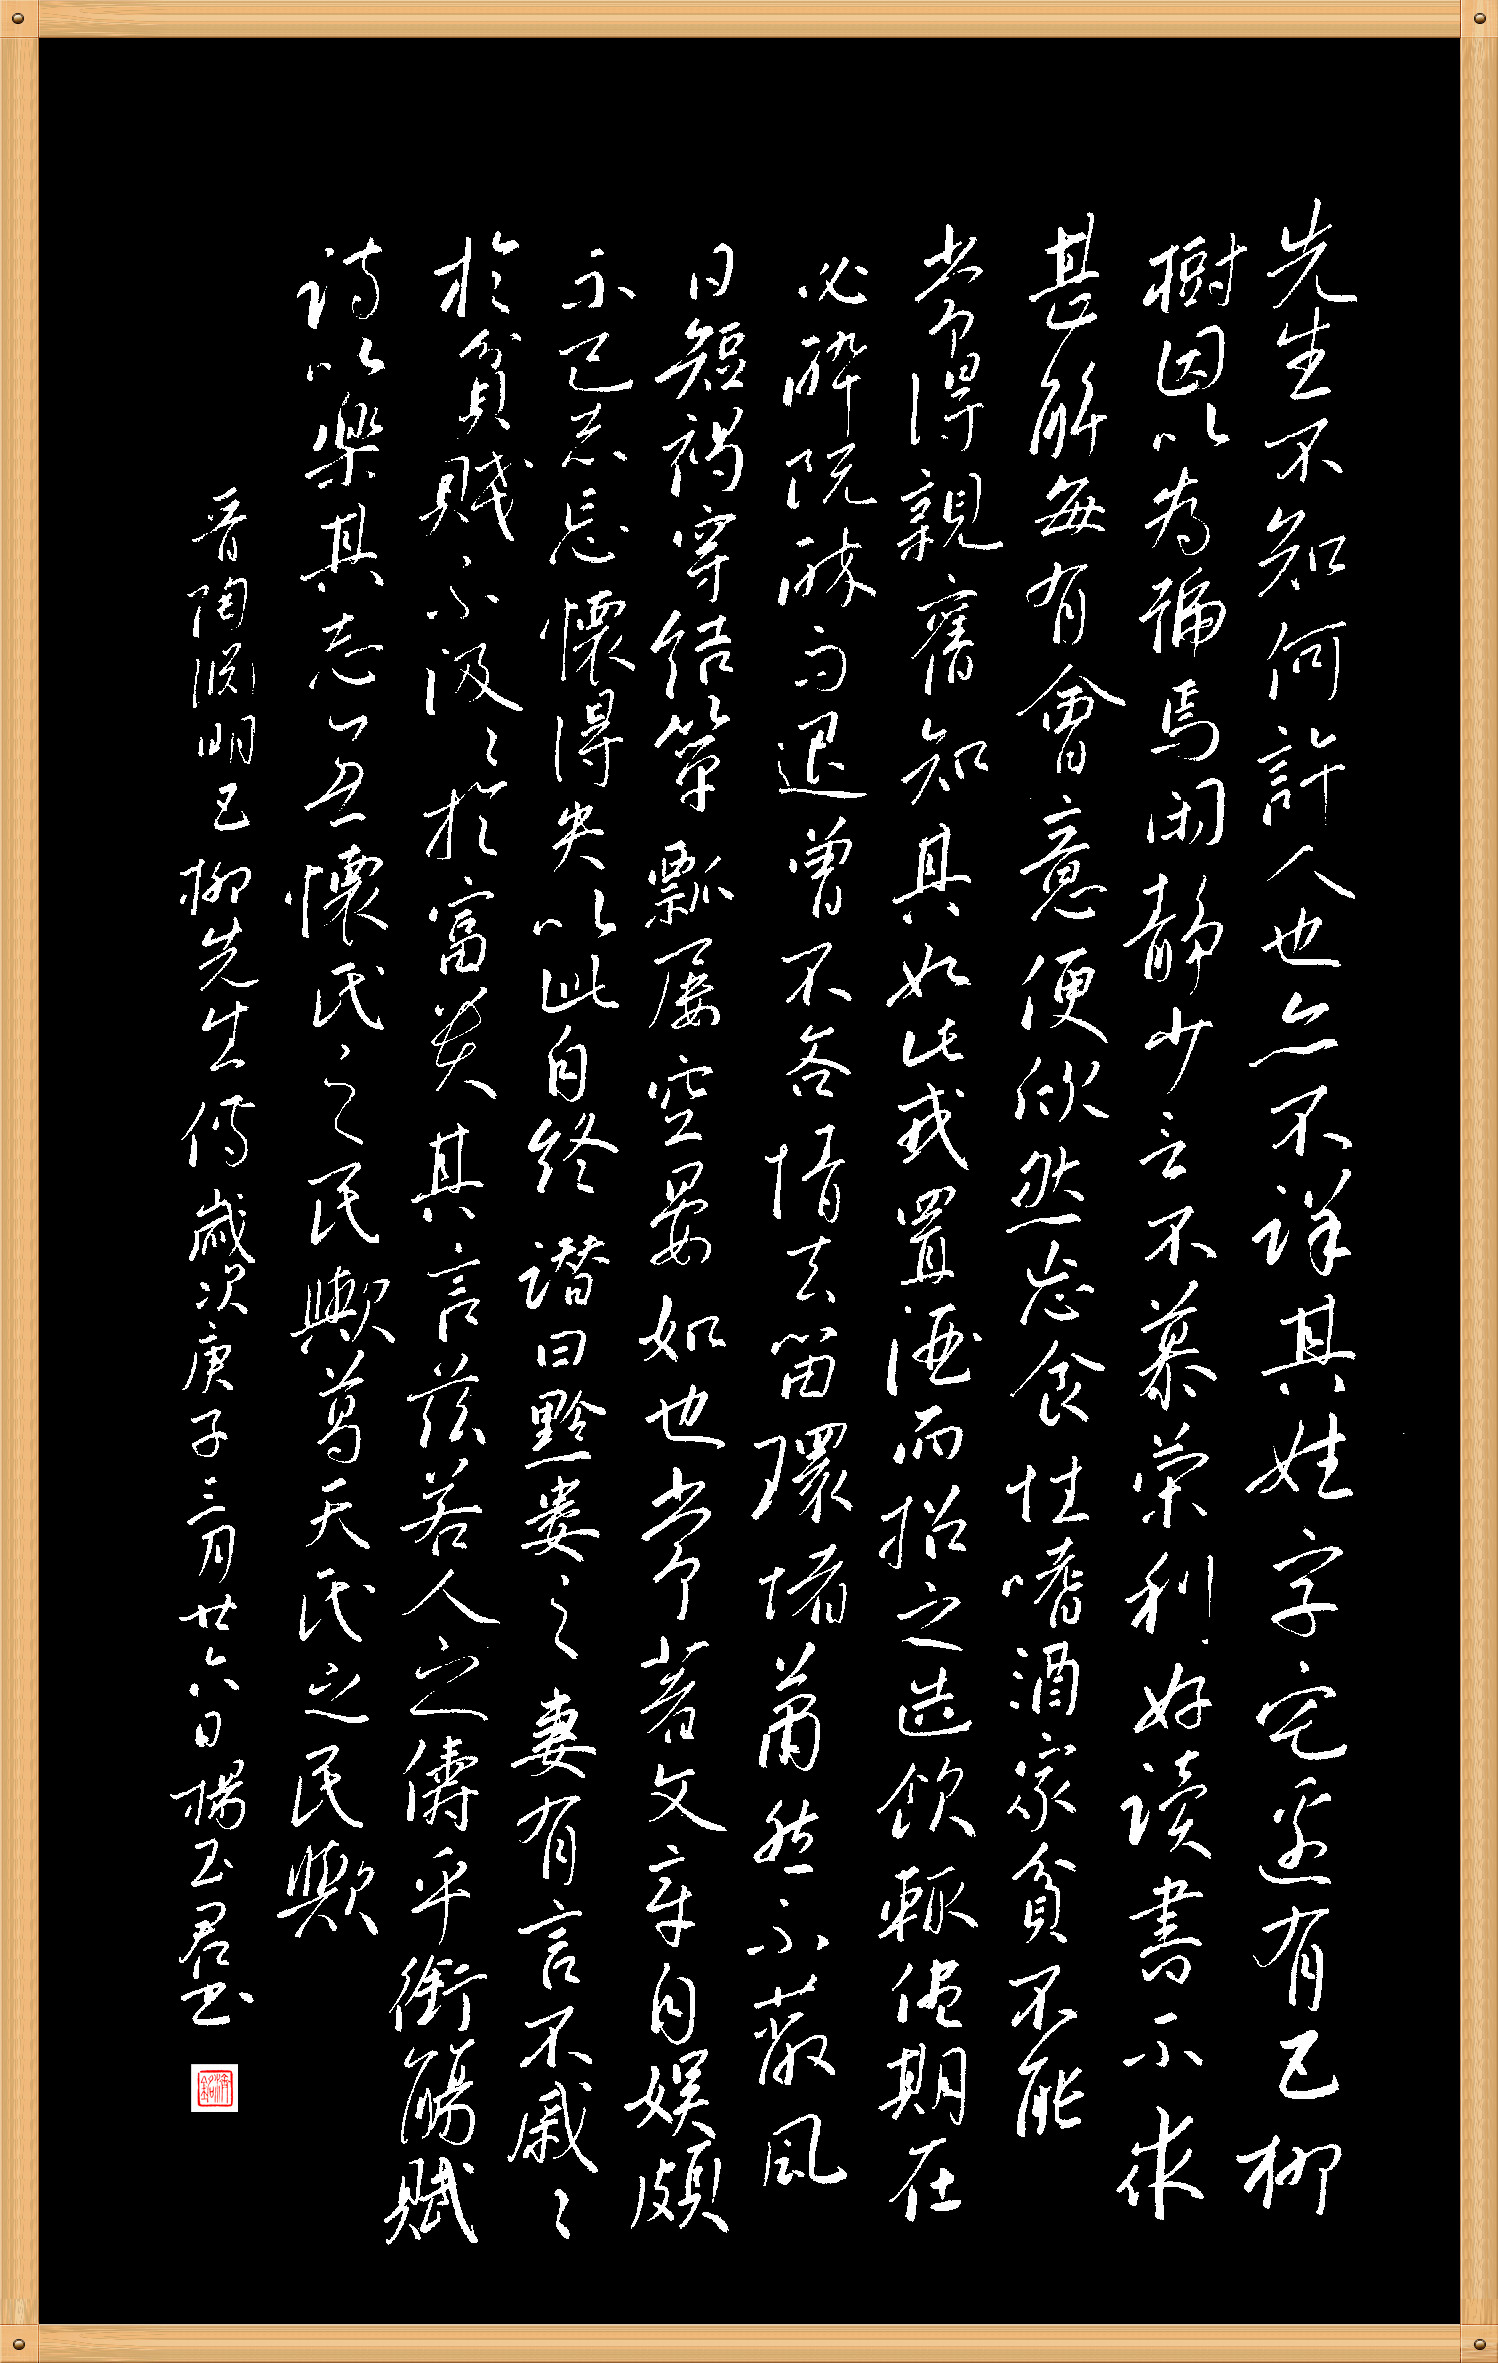 先生不知何許人也亦不詳其姓字宅邊有五柳
樹因以為號焉闲靜少言不慕榮利好读書不求
甚解每有會意便欣然忘食性嗜酒家貧不能
常得親舊知其如此或置酒而招之造飲輒儘期在
必醉既醉而退曾不吝情去留環堵蕭然不蔽風
日短褐穿結簞瓢屢空晏如也常著文章自娛頗
示己志忘懷得失以此自終讚曰黔婁之妻有言不戚〻
於貧賤不汲〻於富貴其言茲若人之儔乎銜觴賦
詩以樂其志無懷氏之民歟葛天氏之民歟
晋陶淵明五柳先生傳歲次庚子三月廿六日楊玉君书